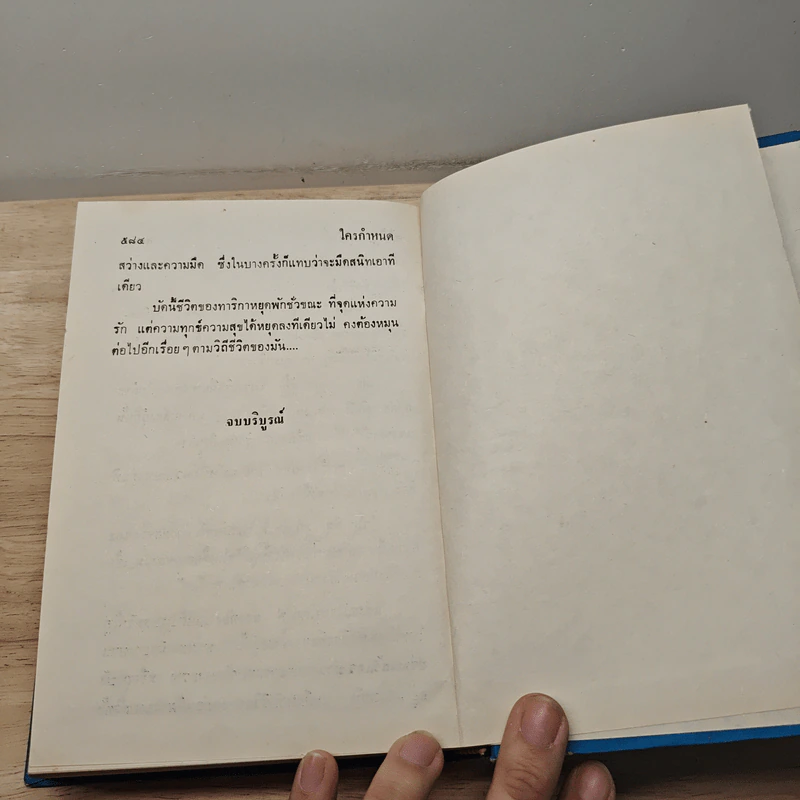 ๕๘๔ ใครกำหนด
สว่างและความมืด ซึ่งในบางครั้งก็แทบว่าจะมืดสนิทเอาที
เดียว
บัดนี้ชีวิตของทาริกาหยุดพักชั่วขณะ ที่จุดแห่งความ
รัก แต่ความทุกข์ความสุขได้หยุดลงทีเดียวไม่ คงต้องหมุน
ต่อไปอีกเรื่อยๆ ตามวิถีชีวิตของมัน....
จบบริบูรณ์